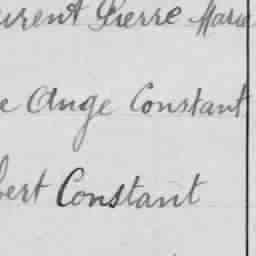 urent Pierre Marie
e Ange Constant
bert Constant